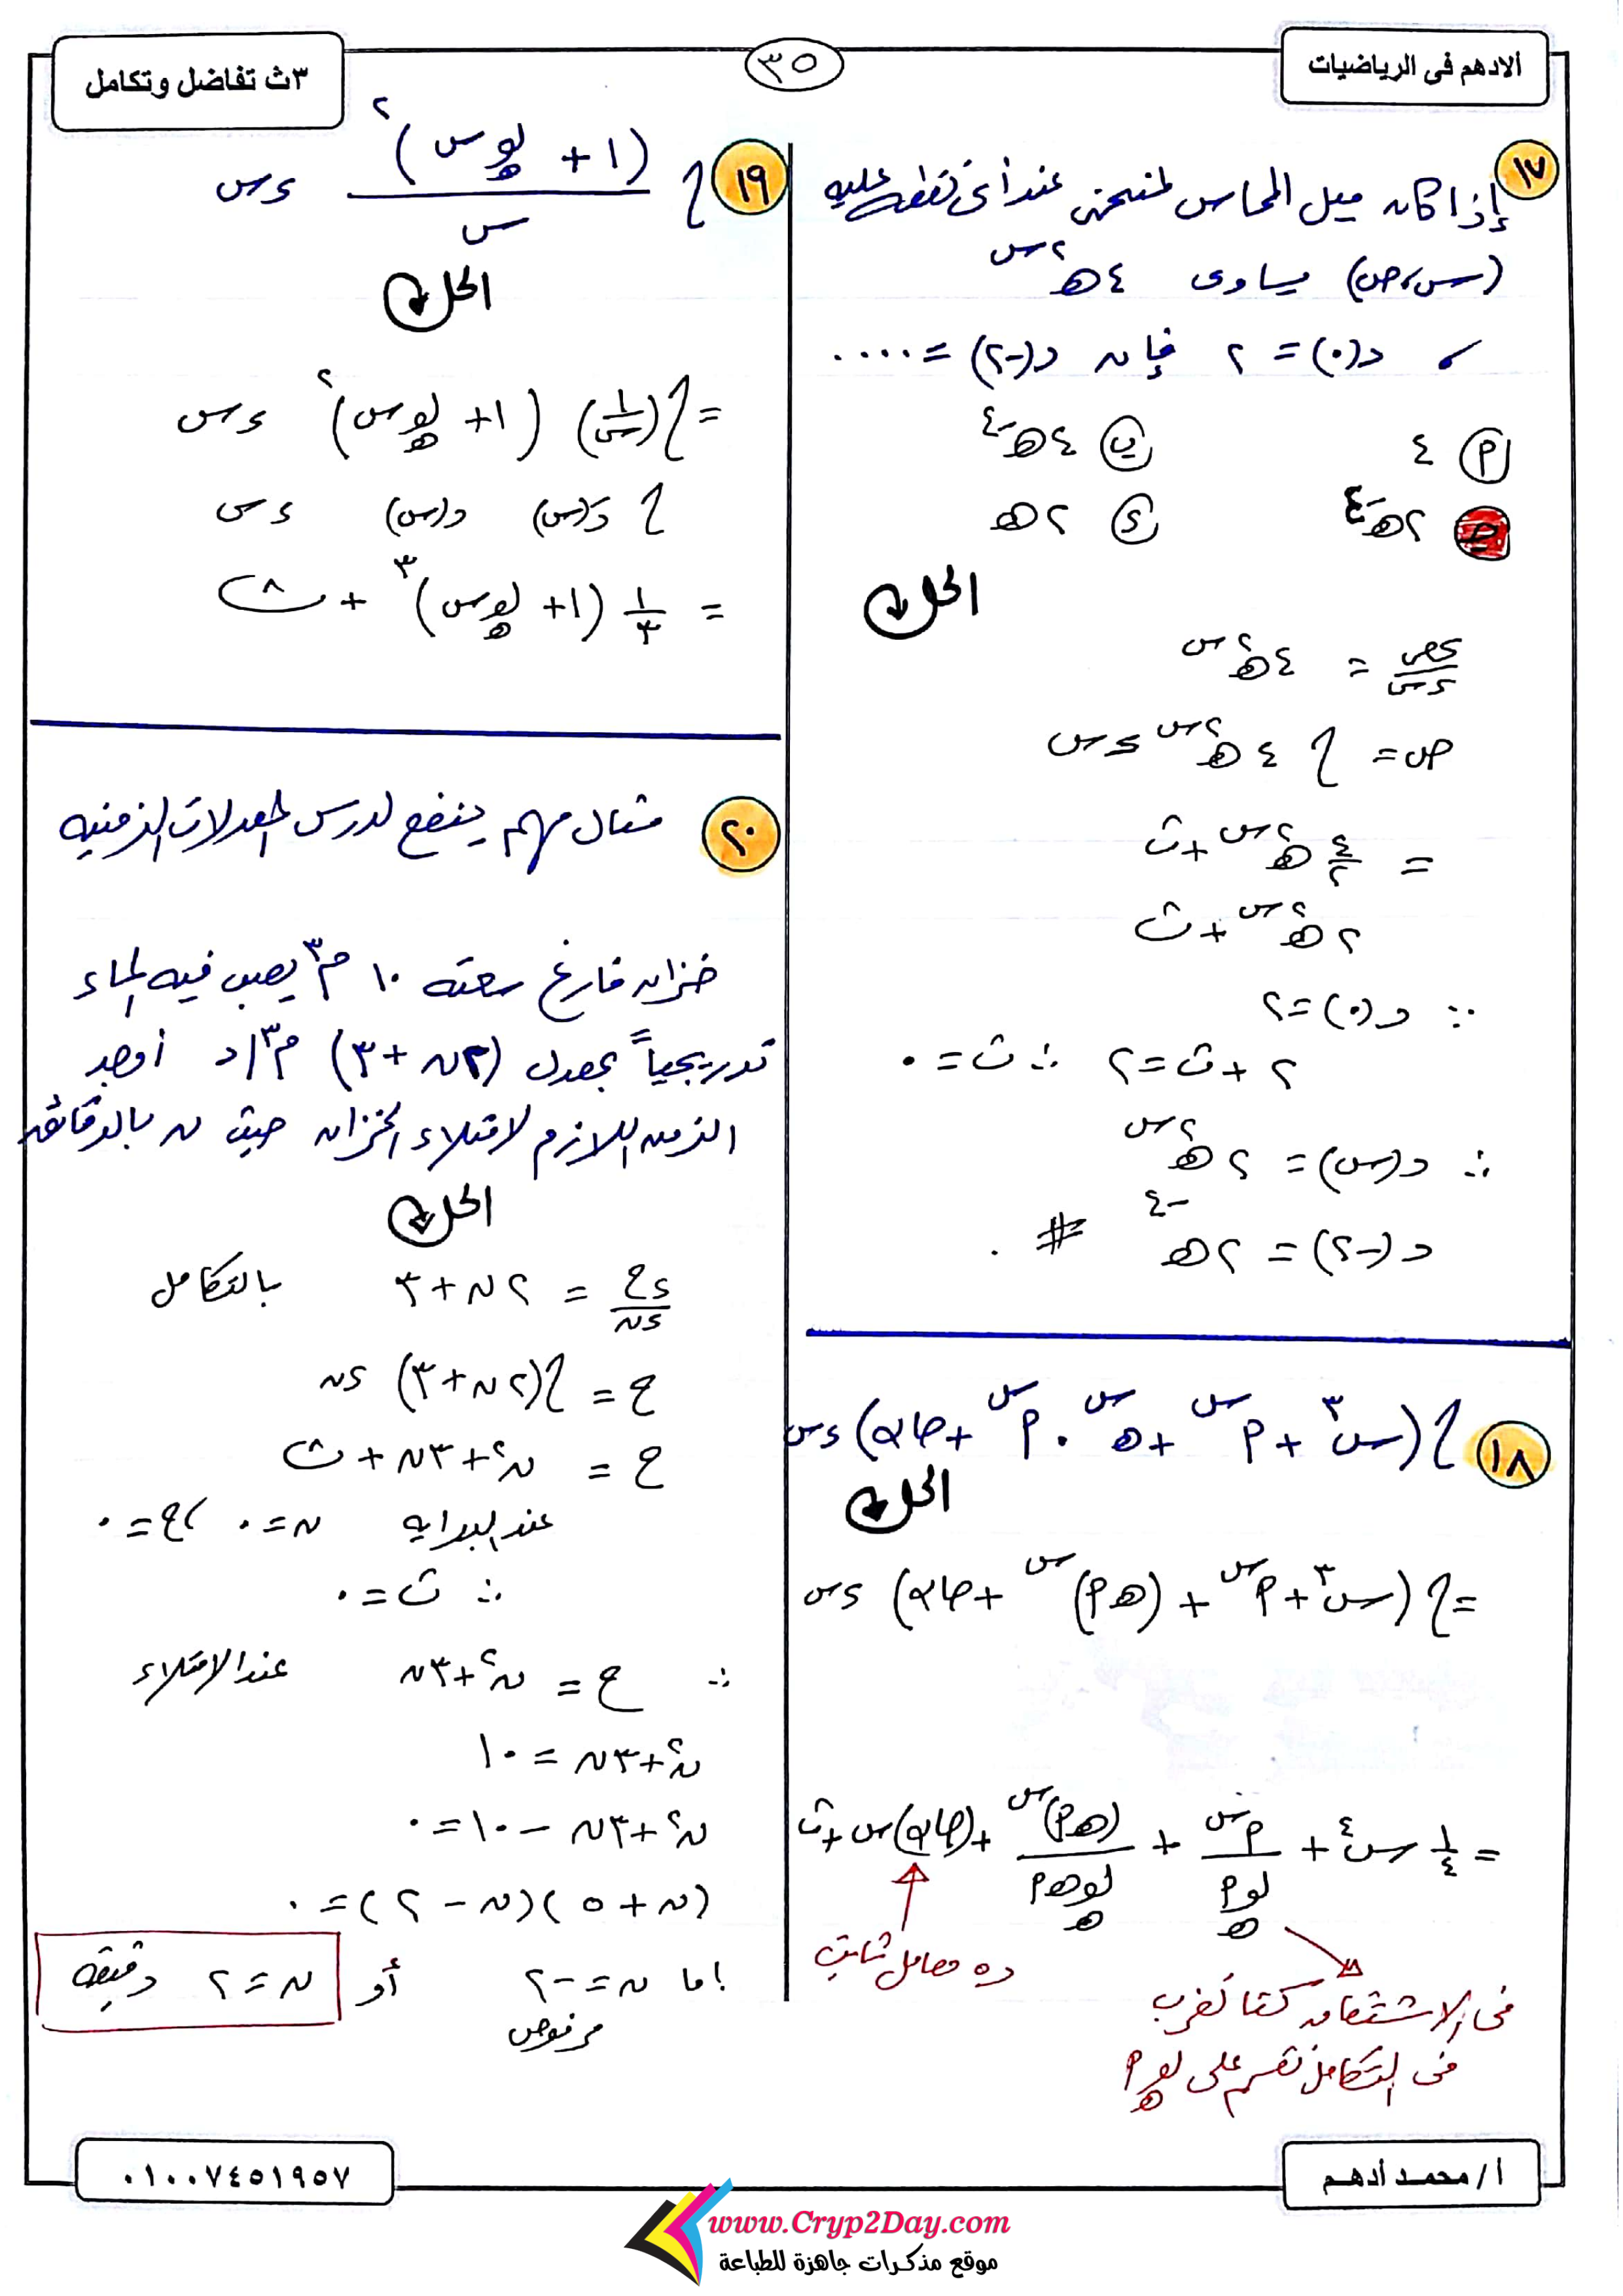 ألادهم فى الرياضيات
٣٥
٣ث تفاضل وتكامل
١٧
إذا كان ميل المماس لمنحنى عند أى نقطة عليه
(س،ص) يساوى ٤ هـ^٢س
، د(٠) = ٢ فإن د(-٢) = ....
أ ٤
ب ٤ هـ^-٤
ج ٢ هـ^-٤
د ٢ هـ
الحل
ءص/ءس = ٤ هـ^٢س
ص = ∫ ٤ هـ^٢س ءس
= ٤/٢ هـ^٢س + ث
٢ هـ^٢س + ث
∵ د(٠) = ٢
٢ + ث = ٢ ∴ ث = ٠
∴ د(س) = ٢ هـ^٢س
د(-٢) = ٢ هـ^-٤ #
١٨
∫(س^٣ + أ^س + هـ^س . أ^س + جا٢) ءس
الحل
= ∫(س^٣ + أ^س + (هـ أ)^س + جا٢) ءس
= ١/٤ س^٤ + أ^س/لو_هـ أ + (هـ أ)^س/لو_هـ هـ أ + (جا٢)س + ث
ده معامل ثابت
فى الاشتقاق كنا نضرب
فى التكامل نقسم على لو_هـ أ
١٩
∫ (١ + لو_هـ س)^٢/س ءس
الحل
= ∫(١/س) (١ + لو_هـ س)^٢ ءس
∫ دَ(س) د(س) ءس
= ١/٣ (١ + لو_هـ س)^٣ + ث
٢٠
مثال مهم ينفع لدرس المعدلات الزمنيه
خزان فارغ سعته ١٠ م^٣ يصب فيه الماء
تدريجياً بمعدل (٢ن + ٣) م^٣/د أوجد
الزمن اللازم لامتلاء الخزان حيث ن بالدقائق
الحل
ءح/ءن = ٢ن + ٣ بالتكامل
ح = ∫(٢ن + ٣) ءن
ح = ن^٢ + ٣ن + ث
عند البدايه ن = ٠ ، ح = ٠
∴ ث = ٠
∴ ح = ن^٢ + ٣ن عند الامتلاء
ن^٢ + ٣ن = ١٠
ن^٢ + ٣ن - ١٠ = ٠
(ن + ٥)(ن - ٢) = ٠
إما ن = -٢ أو ن = ٢ دقيقه
مرفوض
أ / محمـد أدهـم
٠١٠٠٧٤٥١٩٥٧
www.Cryp2Day.com
موقع مذكرات جاهزة للطباعة